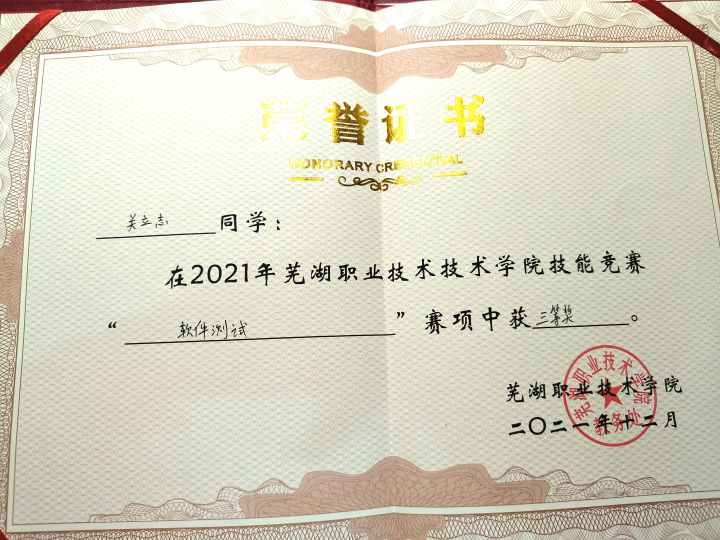 荣誉证书
HONORARY CREDENTIAL
关立志同学：
在2021年芜湖职业技术技术学院技能竞赛
“软件测试”赛项中获三等奖。
芜湖职业技术学院
二〇二一年十二月
芜湖职业技术学院
教务处